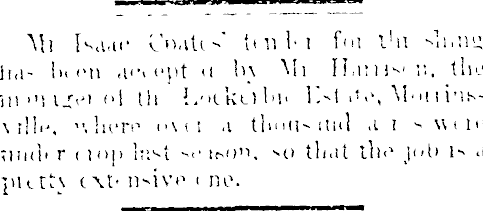 Mr Isaac Coates' tender for thrashing
has been accepted by Mr Harrison, the
manager of the Lockerbie Estate, Morrins-
ville, where over a thousand acres were
under crop last season, so that the job is a
pretty extensive one.